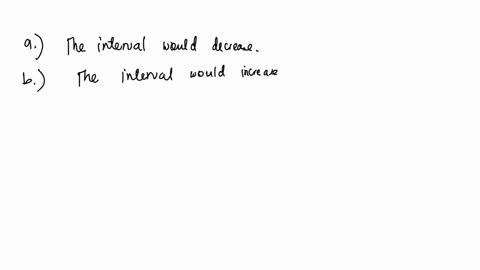 a.) The interval would decrease.
b.) The interval would increase